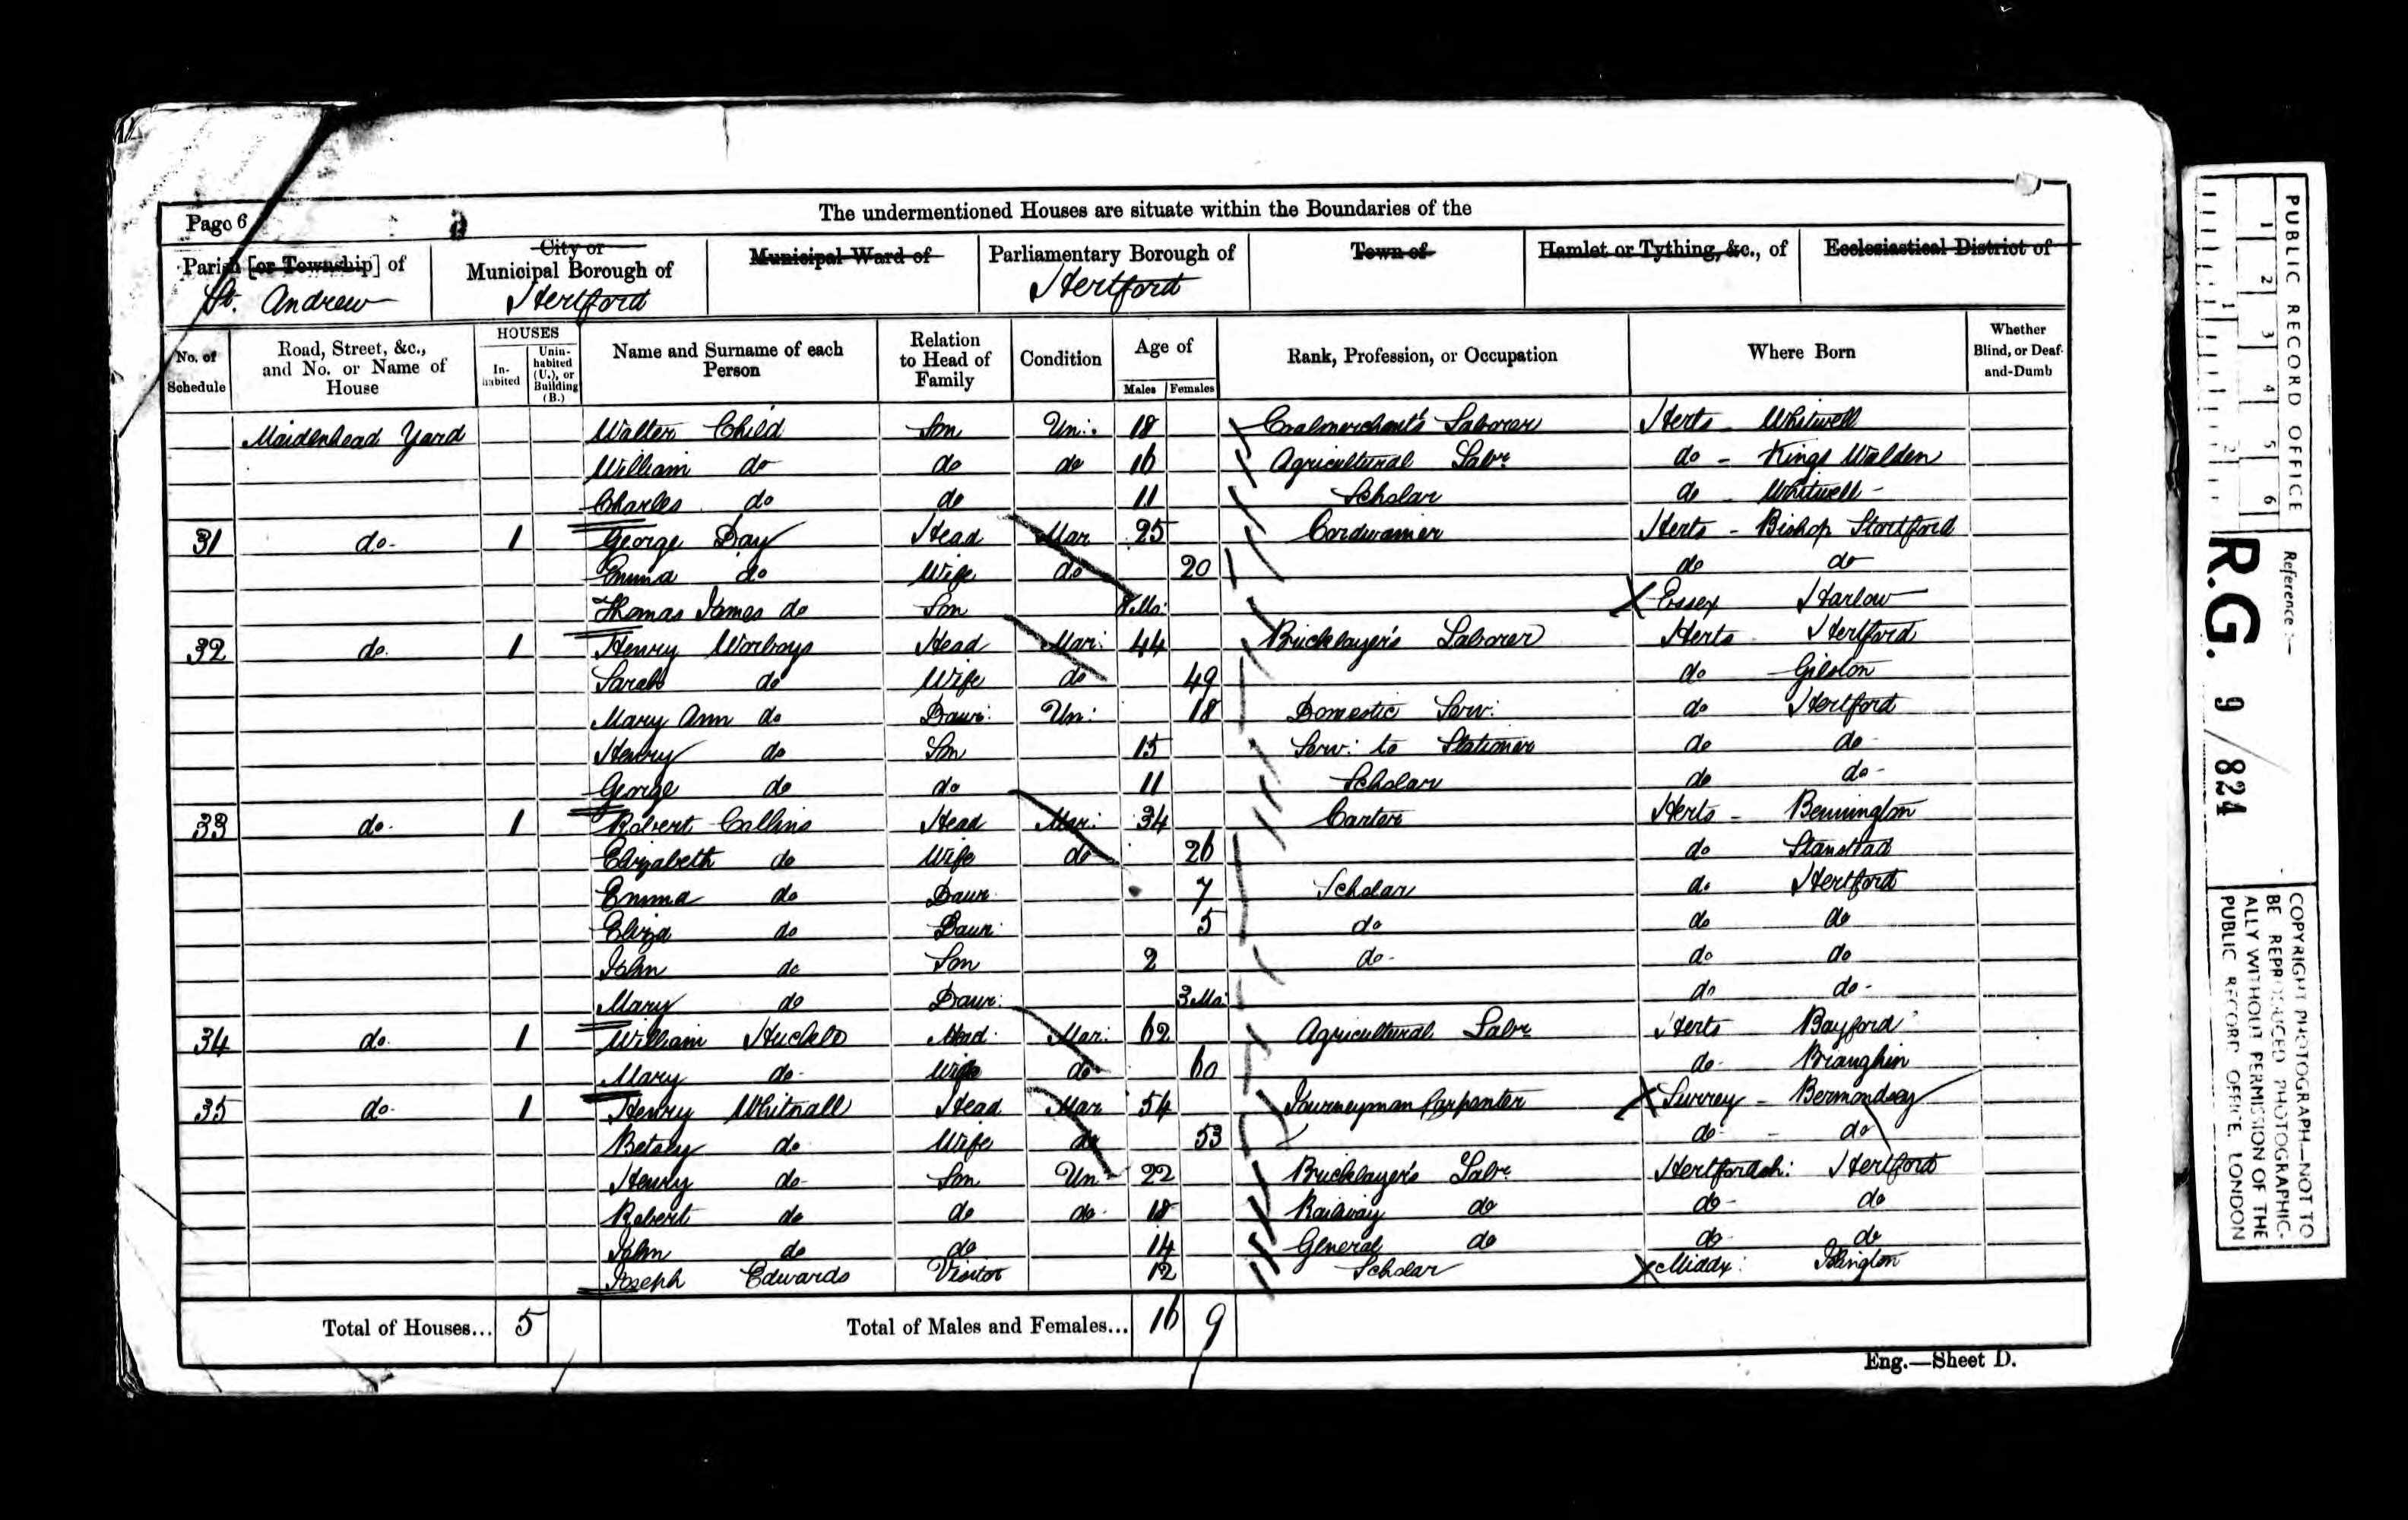 Page 6
The undermentioned Houses are situate within the Boundaries of the
Parish [or Township] of St. Andrew
City or Municipal Borough of Hertford
Municipal Ward of
Parliamentary Borough of Hertford
Town of
Hamlet or Tything, &c., of
Ecclesiastical District of
No. of Schedule
Road, Street, &c., and No. or Name of House
HOUSES
In-habited
Unin-habited (U.), or Building (B.)
Name and Surname of each Person
Relation to Head of Family
Condition
Age of
Males
Females
Rank, Profession, or Occupation
Where Born
Whether Blind, or Deaf-and-Dumb
Maidenhead Yard Walter Child Son Un: 18 Coalmerchant's Laborer Herts - Whitwell
William do do do 16 Agricultural Labr do - Kings Walden
Charles do do 11 Scholar do - Whitwell -
31 do- 1 George Day Head Mar 25 Cordwainer Herts - Bishop Stortford
Emma do Wife do 20 do do
Thomas James do Son 8 Mo: Essex Harlow
32 do. 1 Henry Worboys Head Mar: 44 Bricklayer's Laborer Herts Hertford
Sarah do Wife do 49 do Gilston
Mary Ann do Daur: Un: 18 Domestic Serv: do Hertford
Henry do Son 15 Serv: to Stationer do do-
George do do 11 Scholar do do-
33 do- 1 Robert Collins Head Mar: 34 Carter Herts - Bennington
Elizabeth do Wife do 26 do Stanstead
Emma do Daur 7 Scholar do Hertford
Eliza do Daur 5 do do do
John do Son 2 do- do do
Mary do Daur: 3 Mo: do do-
34 do. 1 William Head Mar: 62 Agricultural Labr Herts Bayford
Mary do- Wife do 60 do-
35 do- 1 Henry Whitnall Head Mar 54 Journeyman Carpenter Surrey - Bermondsey
Betsey do Wife do 53 do- - do
Henry do- Son Un- 22 Bricklayer's Labr Hertfordsh: Hertford
Robert do do do- 18 Railway do do- do
John do do 14 General do do- do
Joseph Edwards Visitor 12 Scholar Middx: Islington
Total of Houses... 5 Total of Males and Females... 16 9
Eng.—Sheet D.
PUBLIC RECORD OFFICE
1 2 3 4 5 6
1 2
Reference:—
R.G. 9/824
COPYRIGHT PHOTOGRAPH—NOT TO
BE REPRODUCED PHOTOGRAPHIC-
ALLY WITHOUT PERMISSION OF THE
PUBLIC RECORD OFFICE, LONDON